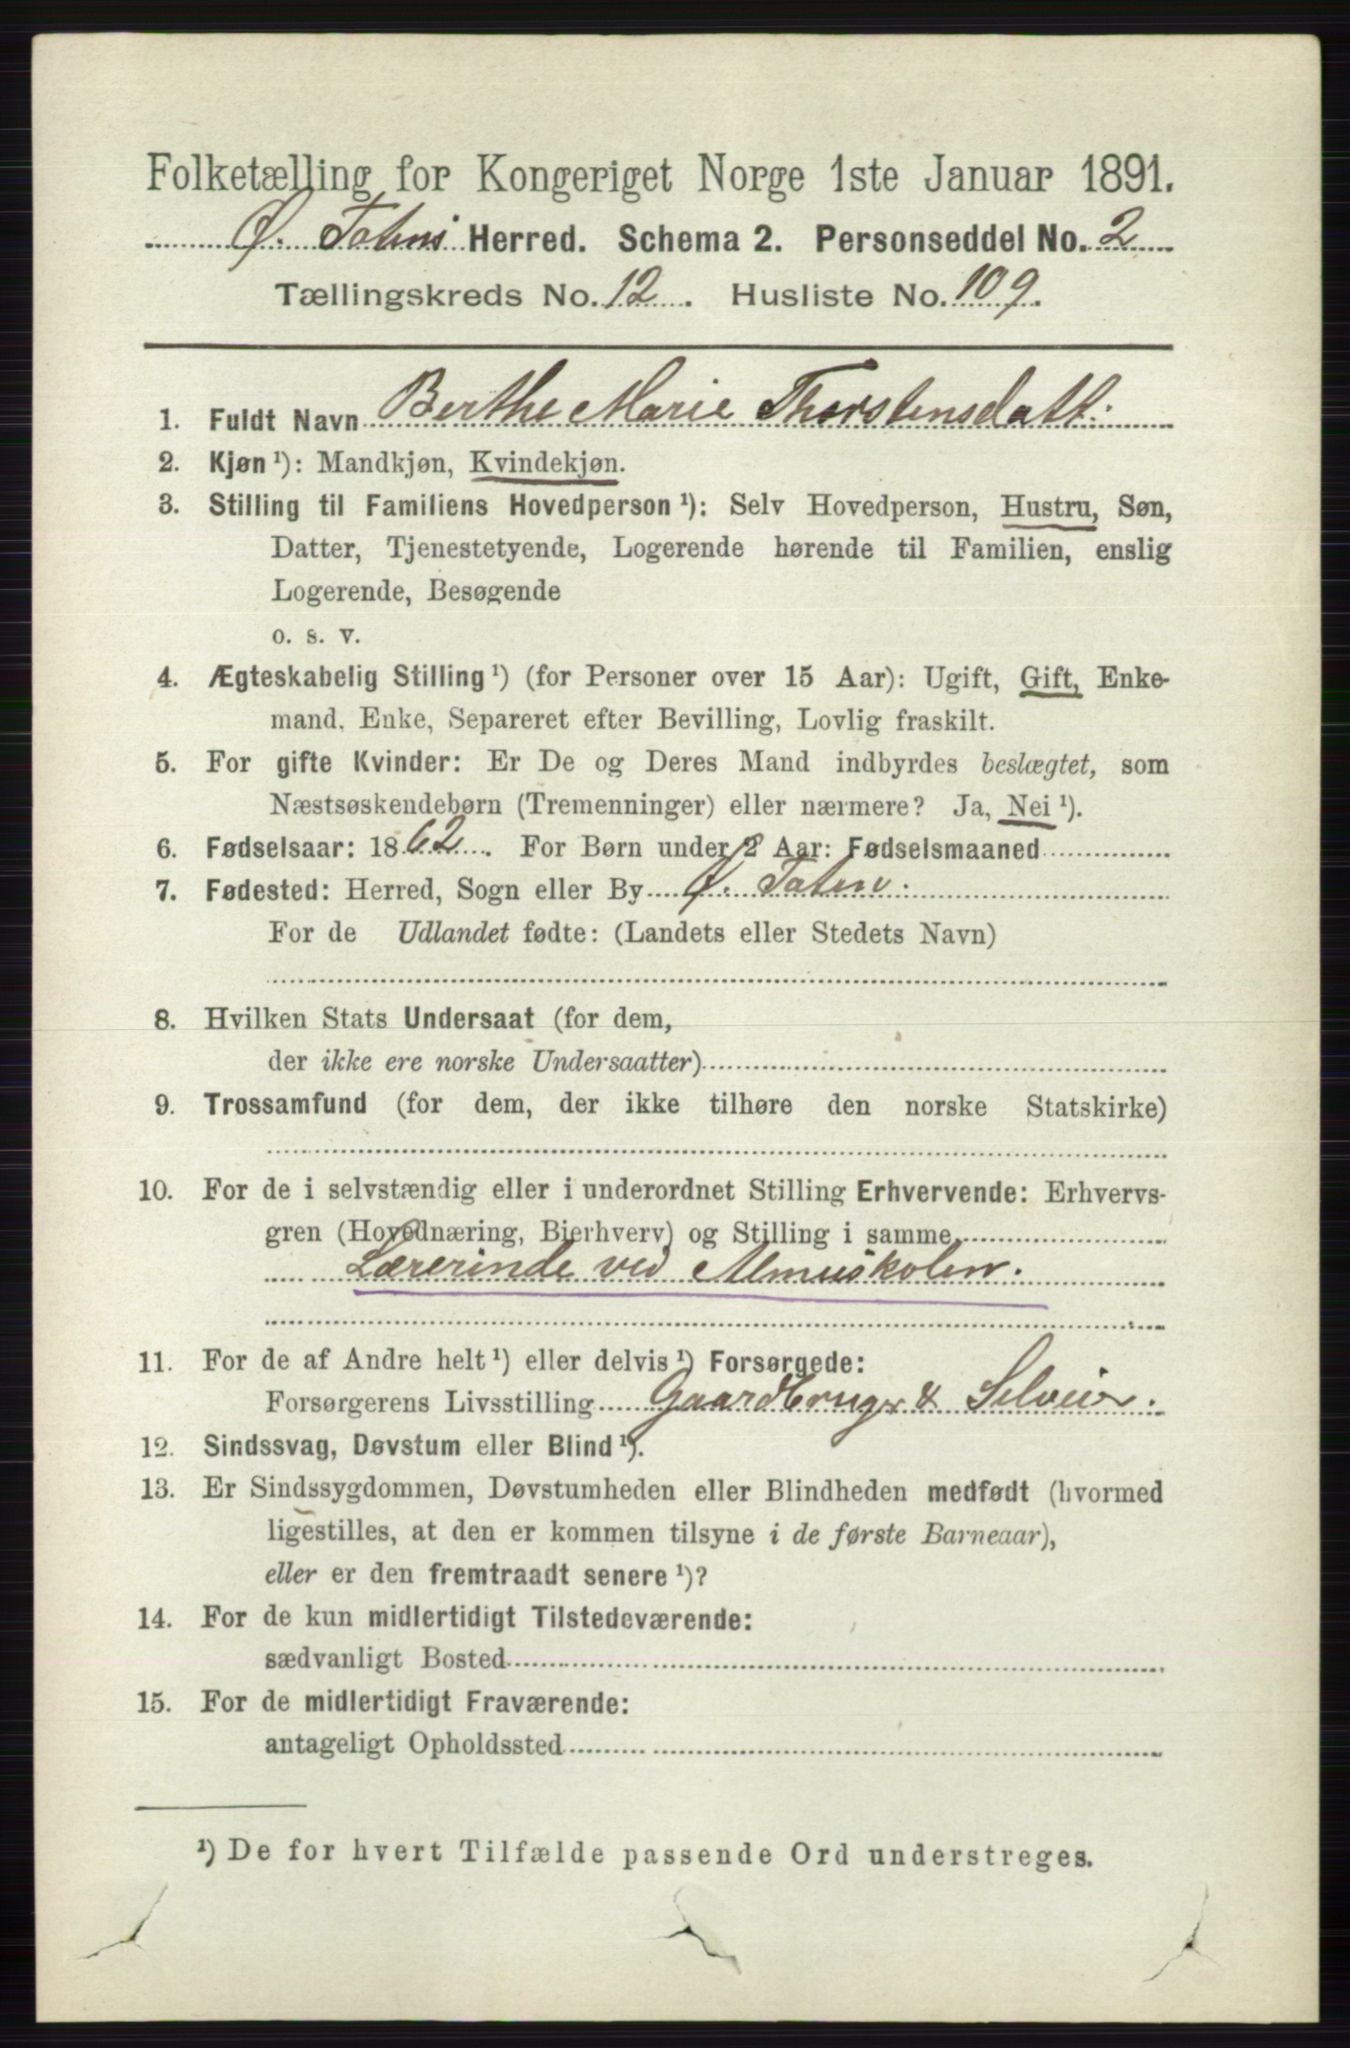 Folketælling for Kongeriget Norge 1ste Januar 1891.
Ø. Totens Herred. Schema 2. Personseddel No. 2
Tællingskreds No. 12. Husliste No. 109.
1. Fuldt Navn Berthe Marie Thorstensdatt:
2. Kjøn ¹): Mandkjøn, Kvindekjøn.
3. Stilling til Familiens Hovedperson ¹): Selv Hovedperson, Hustru, Søn,
Datter, Tjenestetyende, Logerende hørende til Familien, enslig
Logerende, Besøgende
o. s. v.
4. Ægteskabelig Stilling ¹) (for Personer over 15 Aar): Ugift, Gift, Enke-
mand, Enke, Separeret efter Bevilling, Lovlig fraskilt.
5. For gifte Kvinder: Er De og Deres Mand indbyrdes beslægtet, som
Næstsøskendebørn (Tremenninger) eller nærmere? Ja, Nei ¹).
6. Fødselsaar: 1862. For Børn under 2 Aar: Fødselsmaaned
7. Fødested: Herred, Sogn eller By Ø. Toten.
For de Udlandet fødte: (Landets eller Stedets Navn)
8. Hvilken Stats Undersaat (for dem,
der ikke ere norske Undersaatter)
9. Trossamfund (for dem, der ikke tilhøre den norske Statskirke)
10. For de i selvstændig eller i underordnet Stilling Erhvervende: Erhvervs-
gren (Hovednæring, Bierhverv) og Stilling i samme
Lærerinde ved Almuskolen.
11. For de af Andre helt ¹) eller delvis ¹) Forsørgede:
Forsørgerens Livsstilling Gaardbruger & Selveier.
12. Sindssvag, Døvstum eller Blind ¹).
13. Er Sindssygdommen, Døvstumheden eller Blindheden medfødt (hvormed
ligestilles, at den er kommen tilsyne i de første Barneaar),
eller er den fremtraadt senere ¹)?
14. For de kun midlertidigt Tilstedeværende:
sædvanligt Bosted
15. For de midlertidigt Fraværende:
antageligt Opholdssted
¹) De for hvert Tilfælde passende Ord understreges.